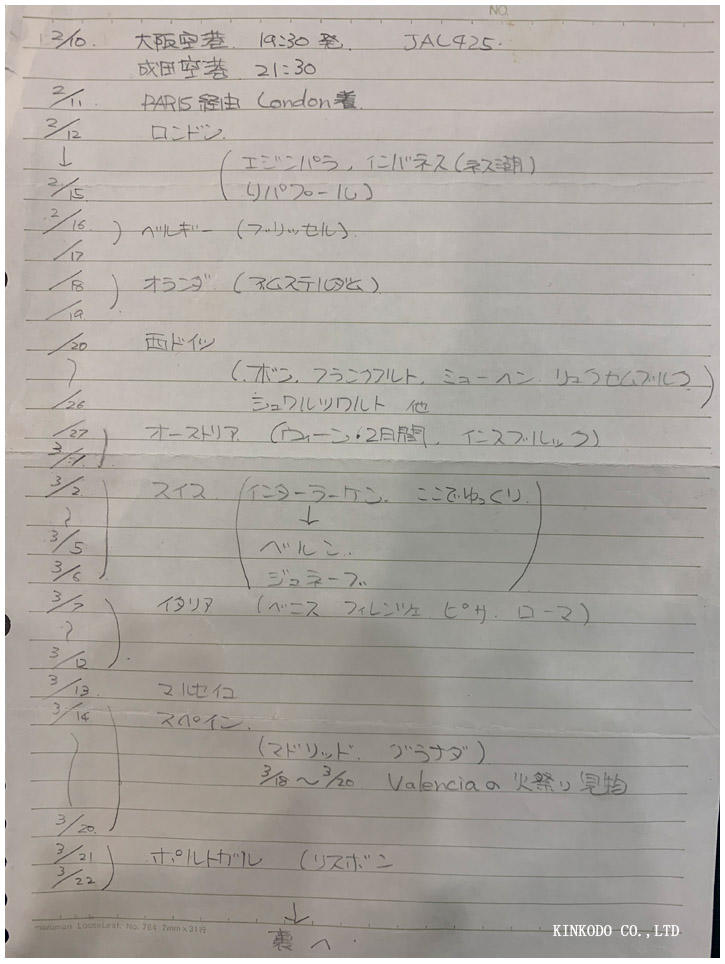 NO.
2/10. 大阪空港 19:30発 JAL425.
成田空港 21:30
2/11 PARIS経由 London着
2/12 ロンドン.
↓ (エジンバラ, インバネス(ネス湖)
2/15 リバプール)
2/16 ) ベルギー (ブリッセル)
/17
/18 ) オランダ (アムステルダム)
/19
/20 西ドイツ
〜 (ボン. フランクフルト. ミューヘン. リュクセムブルク
/26 シュワルツワルト 他)
/27 オーストリア (ウィーン・2日間, インスブルック)
3/1
3/2 スイス (インターラーケン. ここでゆっくり.
〜 ↓
3/5 ベルン.
3/6 ジュネーブ)
3/7 イタリア (ベニス フィレンツェ ピサ. ローマ)
〜
3/12
3/13 マルセイユ
3/14 スペイン.
(マドリッド. グラナダ)
3/18〜3/20 Valenciaの火祭り見物
3/20
3/21 ポルトガル (リスボン
3/22
↓
裏へ
maruman LooseLeaf. No. 764 7mm×31行
KINKODO CO.,LTD